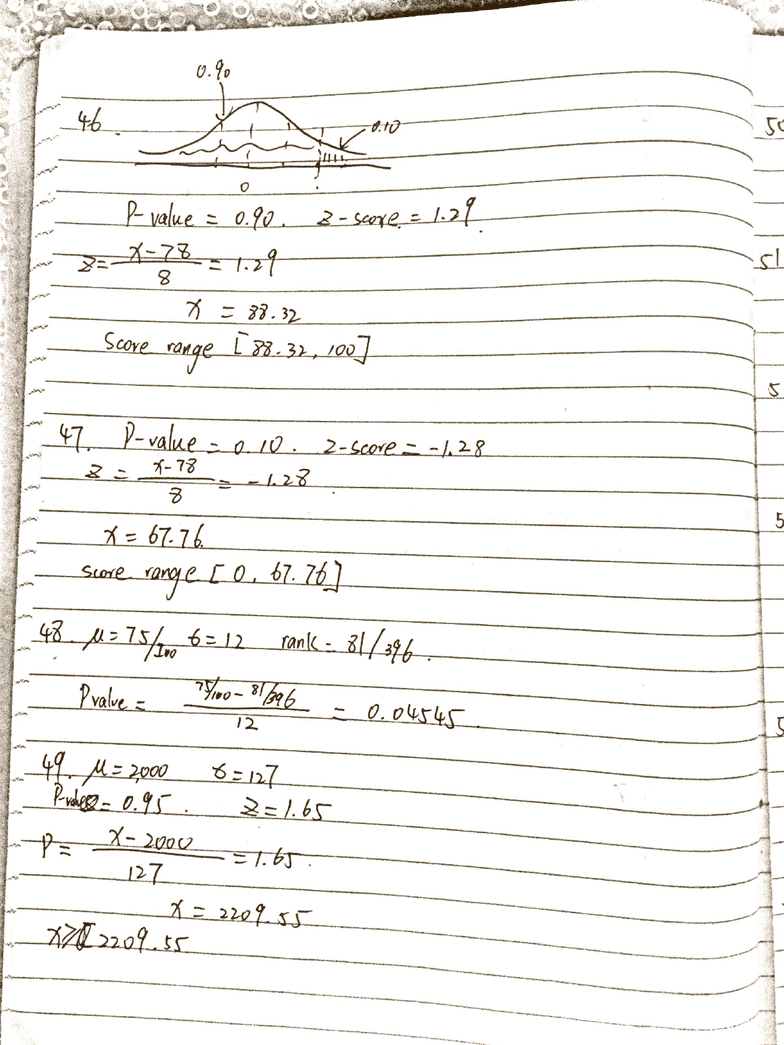 0.90
46.
0.10
0
P-value = 0.90. z-score = 1.29.
z = (x-78)/8 = 1.29
x = 88.32
Score range [88.32, 100]
47. P-value = 0.10. z-score = -1.28
z = (x-78)/8 = -1.28
x = 67.76
score range [0, 67.76]
48. μ = 75/100 σ = 12 rank = 81/396.
P value = (75/100 - 81/396)/12 = 0.04545
49. μ = 2,000 σ = 127
P-value = 0.95. z = 1.65
P = (x-2000)/127 = 1.65.
x = 2209.55
x ≥ 2209.55
50
51
5
5
5